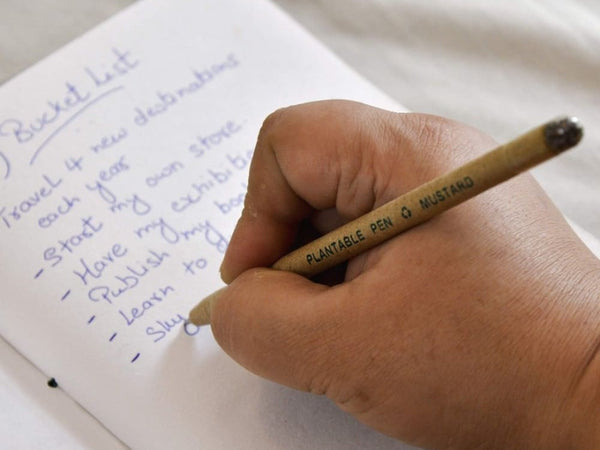 Bucket List
Travel 4 new destinations
each year
- Start my own store
- Have my exhibitio
- Publish my bo
- Learn to
- Sky
PLANTABLE PEN MUSTARD